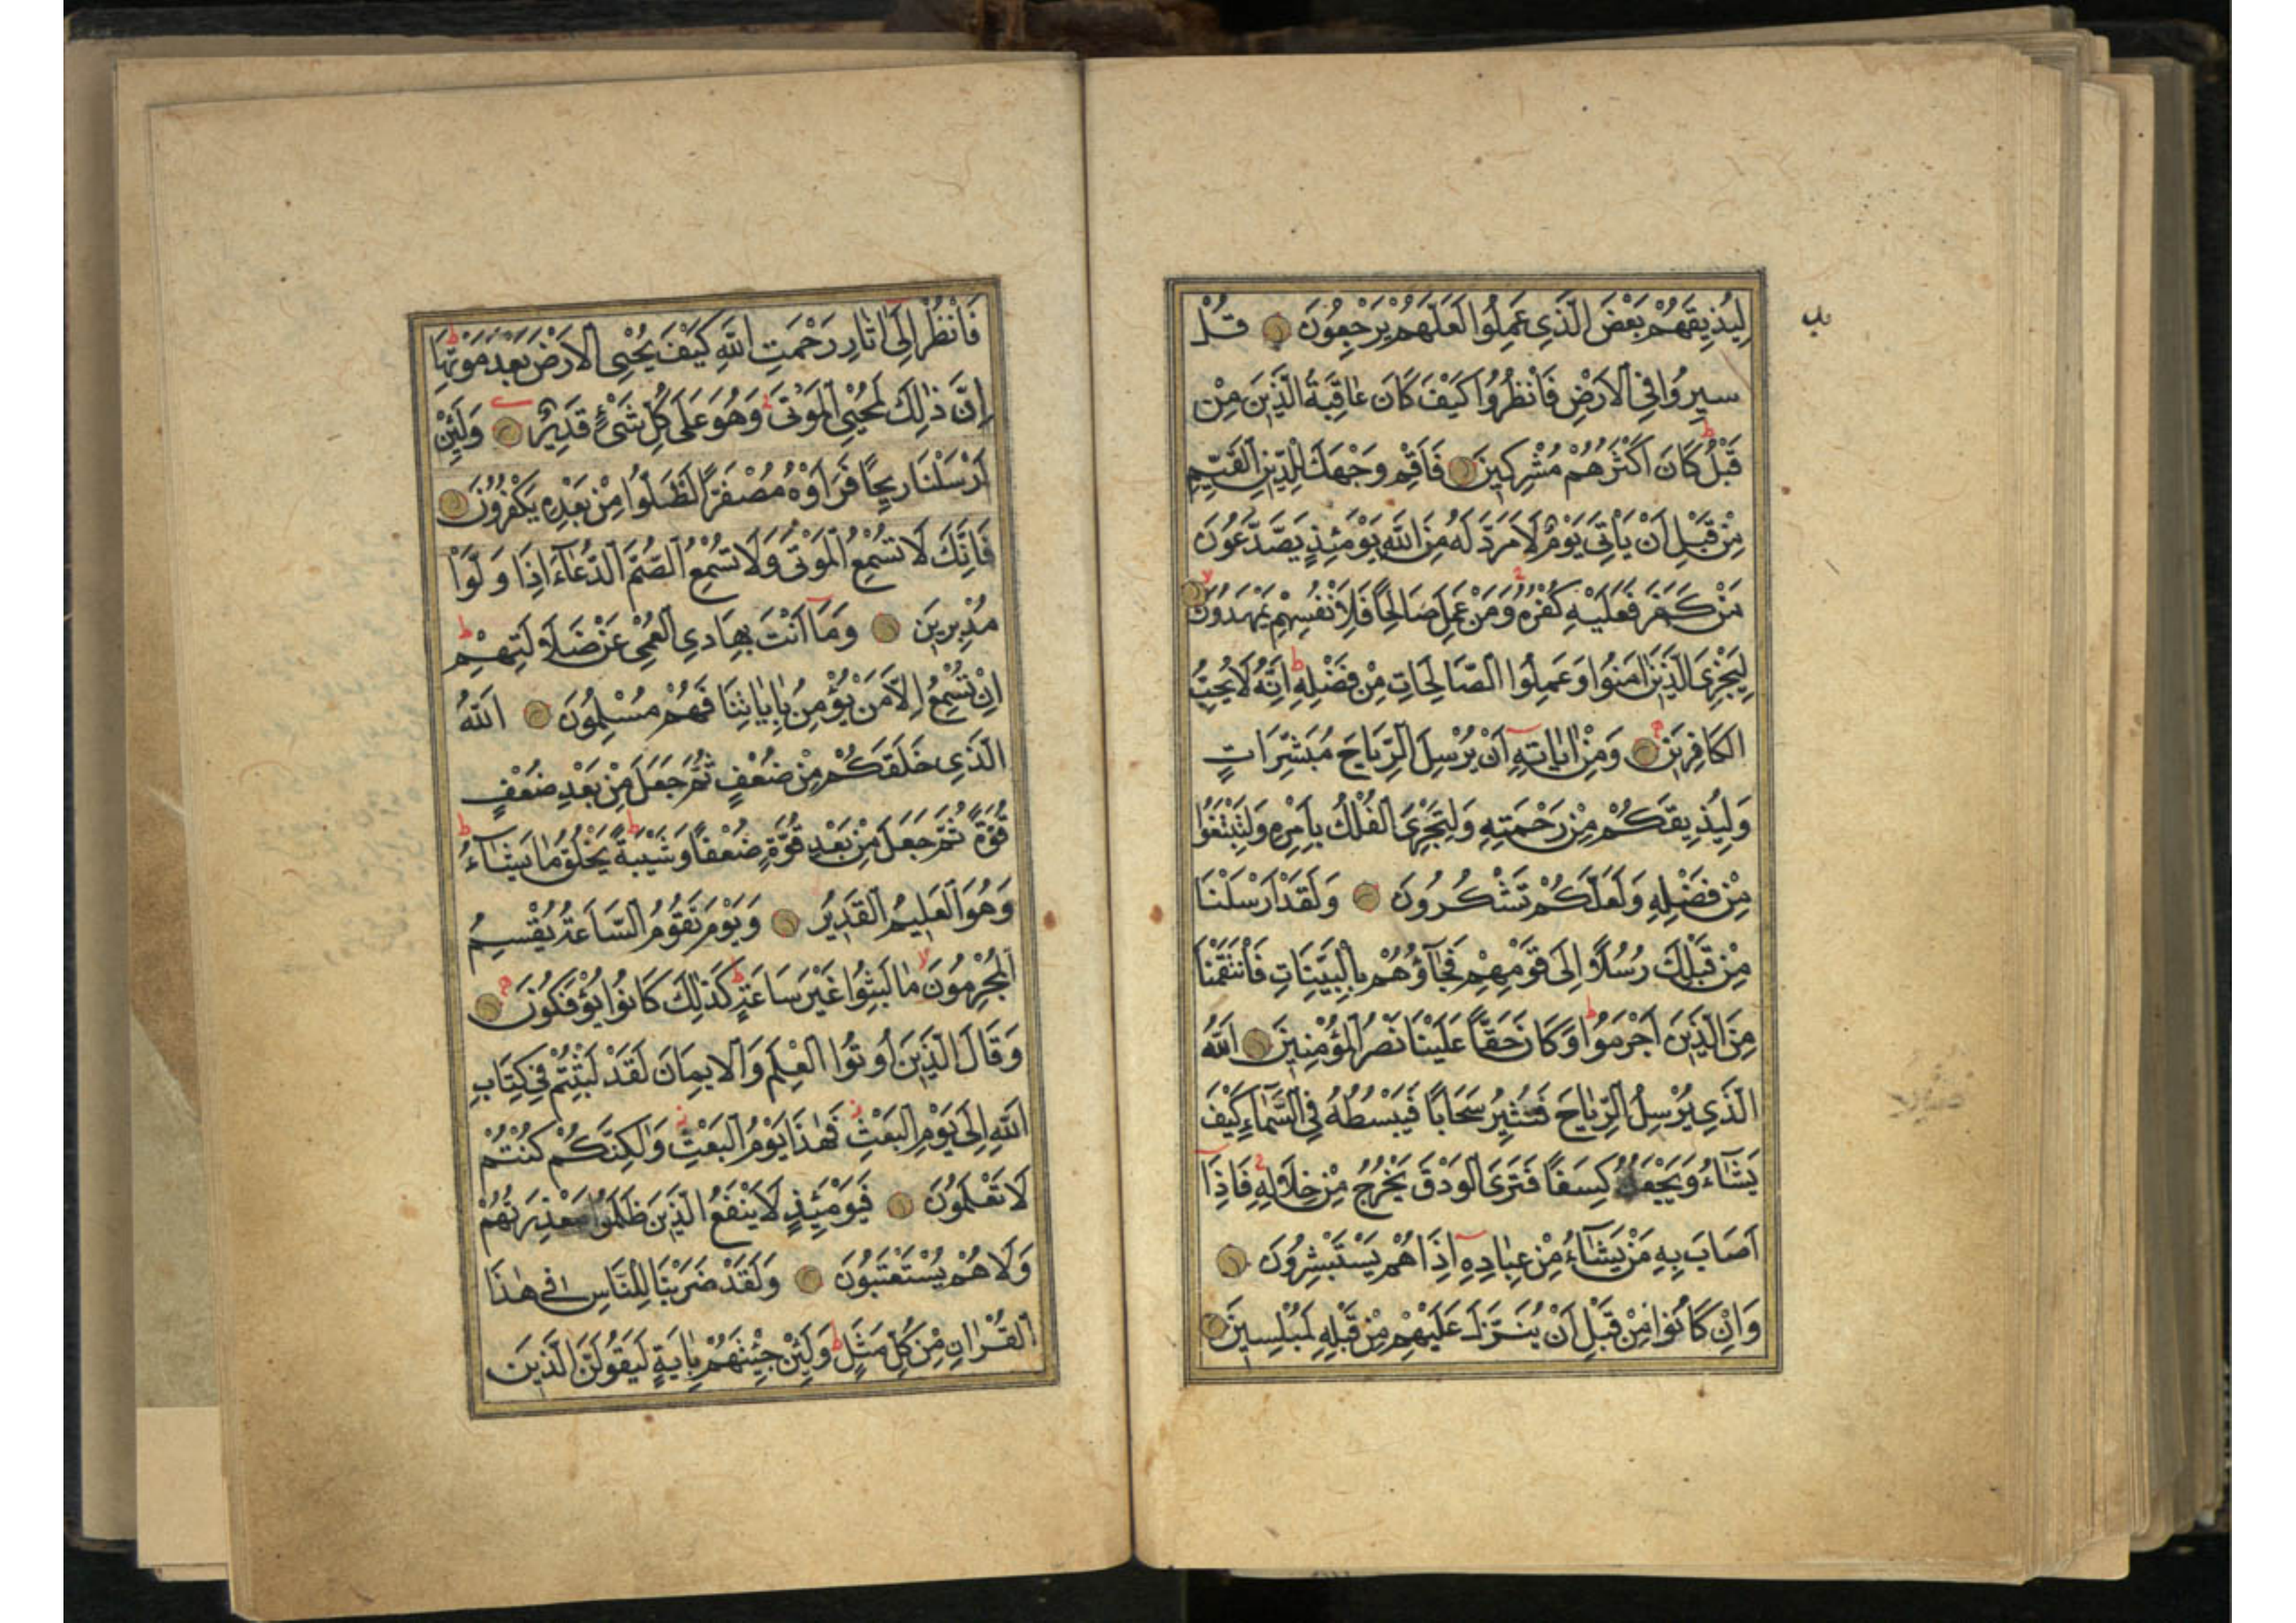 لِيُذِيقَهُمْ بَعْضَ الَّذِي عَمِلُوا لَعَلَّهُمْ يَرْجِعُونَ قُلْ
سِيرُوا فِي الْاَرْضِ فَانْظُرُوا كَيْفَ كَانَ عَاقِبَةُ الَّذِينَ مِنْ
قَبْلُ كَانَ اَكْثَرُهُمْ مُشْرِكِينَ فَاَقِمْ وَجْهَكَ لِلدِّينِ الْقَيِّمِ
مِنْ قَبْلِ اَنْ يَاْتِيَ يَوْمٌ لَا مَرَدَّ لَهُ مِنَ اللّٰهِ يَوْمَئِذٍ يَصَّدَّعُونَ
مَنْ كَفَرَ فَعَلَيْهِ كُفْرُهُ وَمَنْ عَمِلَ صَالِحًا فَلِاَنْفُسِهِمْ يَمْهَدُونَ
لِيَجْزِيَ الَّذِينَ اٰمَنُوا وَعَمِلُوا الصَّالِحَاتِ مِنْ فَضْلِهِ اِنَّهُ لَا يُحِبُّ
الْكَافِرِينَ وَمِنْ اٰيَاتِهِ اَنْ يُرْسِلَ الرِّيَاحَ مُبَشِّرَاتٍ
وَلِيُذِيقَكُمْ مِنْ رَحْمَتِهِ وَلِتَجْرِيَ الْفُلْكُ بِاَمْرِهِ وَلِتَبْتَغُوا
مِنْ فَضْلِهِ وَلَعَلَّكُمْ تَشْكُرُونَ وَلَقَدْ اَرْسَلْنَا
مِنْ قَبْلِكَ رُسُلًا اِلَى قَوْمِهِمْ فَجَآؤُهُمْ بِالْبَيِّنَاتِ فَانْتَقَمْنَا
مِنَ الَّذِينَ اَجْرَمُوا وَكَانَ حَقًّا عَلَيْنَا نَصْرُ الْمُؤْمِنِينَ اَللّٰهُ
الَّذِي يُرْسِلُ الرِّيَاحَ فَتُثِيرُ سَحَابًا فَيَبْسُطُهُ فِي السَّمَآءِ كَيْفَ
يَشَآءُ وَيَجْعَلُهُ كِسَفًا فَتَرَى الْوَدْقَ يَخْرُجُ مِنْ خِلَالِهِ فَاِذَا
اَصَابَ بِهِ مَنْ يَشَآءُ مِنْ عِبَادِهِ اِذَا هُمْ يَسْتَبْشِرُونَ
وَاِنْ كَانُوا مِنْ قَبْلِ اَنْ يُنَزَّلَ عَلَيْهِمْ مِنْ قَبْلِهِ لَمُبْلِسِينَ
فَانْظُرْ اِلَى اٰثَارِ رَحْمَتِ اللّٰهِ كَيْفَ يُحْيِي الْاَرْضَ بَعْدَ مَوْتِهَا
اِنَّ ذٰلِكَ لَمُحْيِي الْمَوْتَى وَهُوَ عَلَى كُلِّ شَيْءٍ قَدِيرٌ وَلَئِنْ
اَرْسَلْنَا رِيحًا فَرَاَوْهُ مُصْفَرًّا لَظَلُّوا مِنْ بَعْدِهِ يَكْفُرُونَ
فَاِنَّكَ لَا تُسْمِعُ الْمَوْتَى وَلَا تُسْمِعُ الصُّمَّ الدُّعَآءَ اِذَا وَلَّوْا
مُدْبِرِينَ وَمَا اَنْتَ بِهَادِي الْعُمْيِ عَنْ ضَلَالَتِهِمْ
اِنْ تُسْمِعُ اِلَّا مَنْ يُؤْمِنُ بِاٰيَاتِنَا فَهُمْ مُسْلِمُونَ اَللّٰهُ
الَّذِي خَلَقَكُمْ مِنْ ضُعْفٍ ثُمَّ جَعَلَ مِنْ بَعْدِ ضُعْفٍ
قُوَّةً ثُمَّ جَعَلَ مِنْ بَعْدِ قُوَّةٍ ضُعْفًا وَشَيْبَةً يَخْلُقُ مَا يَشَآءُ
وَهُوَ الْعَلِيمُ الْقَدِيرُ وَيَوْمَ تَقُومُ السَّاعَةُ يُقْسِمُ
الْمُجْرِمُونَ مَا لَبِثُوا غَيْرَ سَاعَةٍ كَذٰلِكَ كَانُوا يُؤْفَكُونَ
وَقَالَ الَّذِينَ اُوتُوا الْعِلْمَ وَالْاِيمَانَ لَقَدْ لَبِثْتُمْ فِي كِتَابِ
اللّٰهِ اِلَى يَوْمِ الْبَعْثِ فَهٰذَا يَوْمُ الْبَعْثِ وَلٰكِنَّكُمْ كُنْتُمْ
لَا تَعْلَمُونَ فَيَوْمَئِذٍ لَا يَنْفَعُ الَّذِينَ ظَلَمُوا مَعْذِرَتُهُمْ
وَلَا هُمْ يُسْتَعْتَبُونَ وَلَقَدْ ضَرَبْنَا لِلنَّاسِ فِي هٰذَا
الْقُرْاٰنِ مِنْ كُلِّ مَثَلٍ وَلَئِنْ جِئْتَهُمْ بِاٰيَةٍ لَيَقُولَنَّ الَّذِينَ